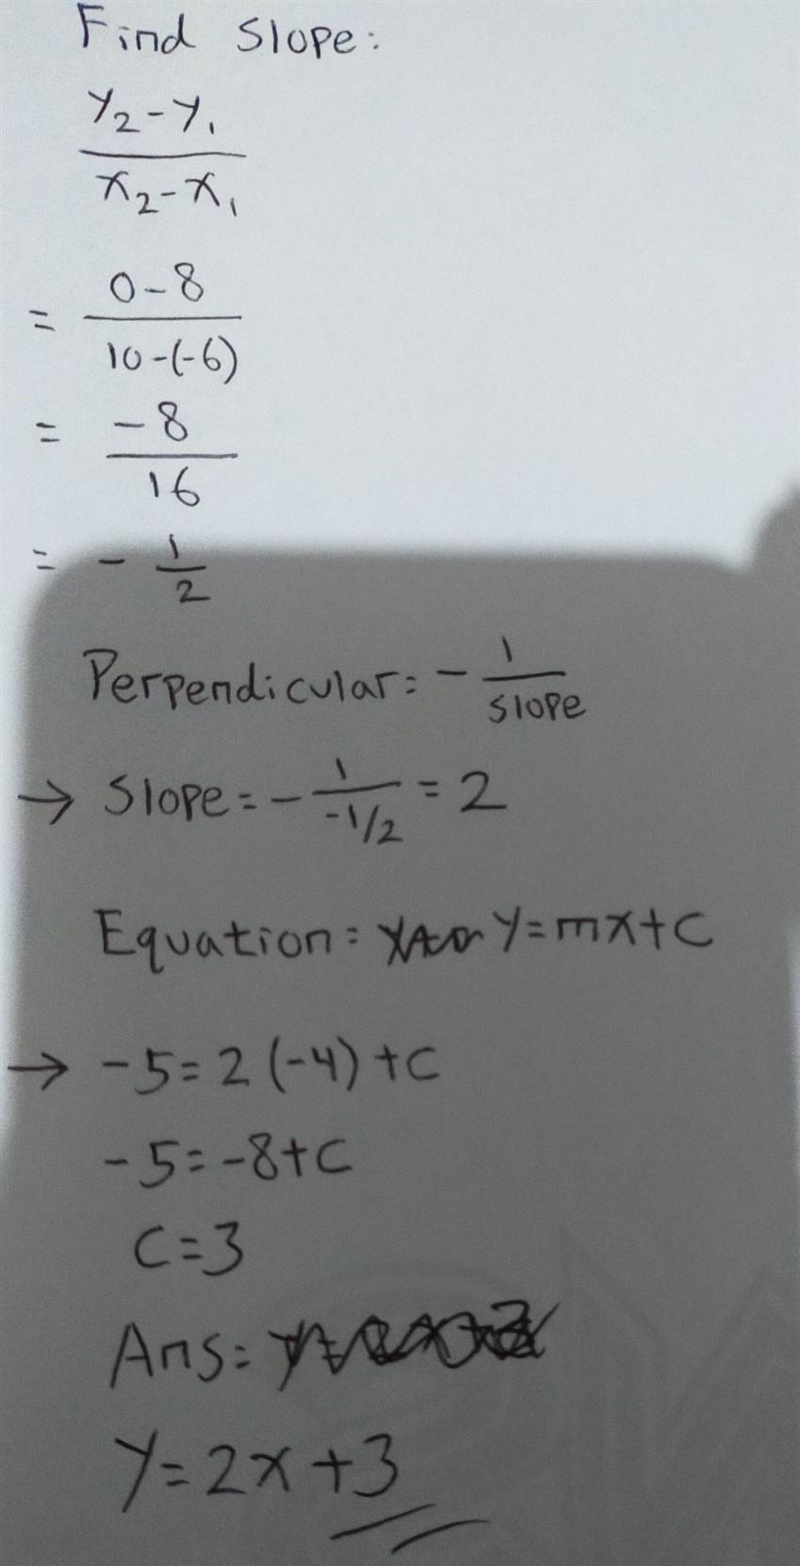 Find slope:
y₂-y₁
x₂-x₁
= 0-8
10-(-6)
= -8
16
= - 1
2
Perpendicular: - 1
slope
→ slope = - 1 = 2
-1/2
Equation: y=mx+c
→ -5=2(-4)+c
-5=-8+c
c=3
Ans:
y=2x+3